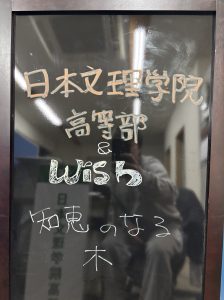 日本文理学院
高等部
&
Wish
知恵のなる
木